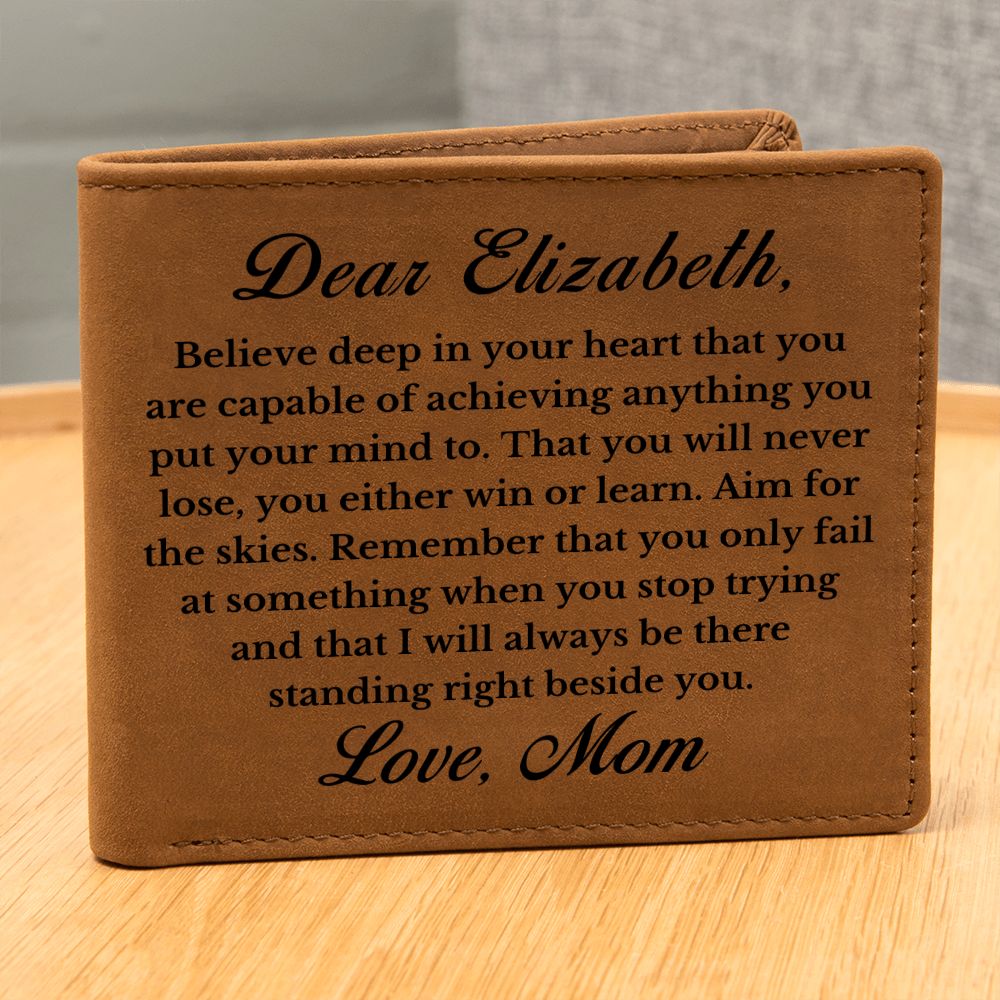 Dear Elizabeth,
Believe deep in your heart that you
are capable of achieving anything you
put your mind to. That you will never
lose, you either win or learn. Aim for
the skies. Remember that you only fail
at something when you stop trying
and that I will always be there
standing right beside you.
Love, Mom